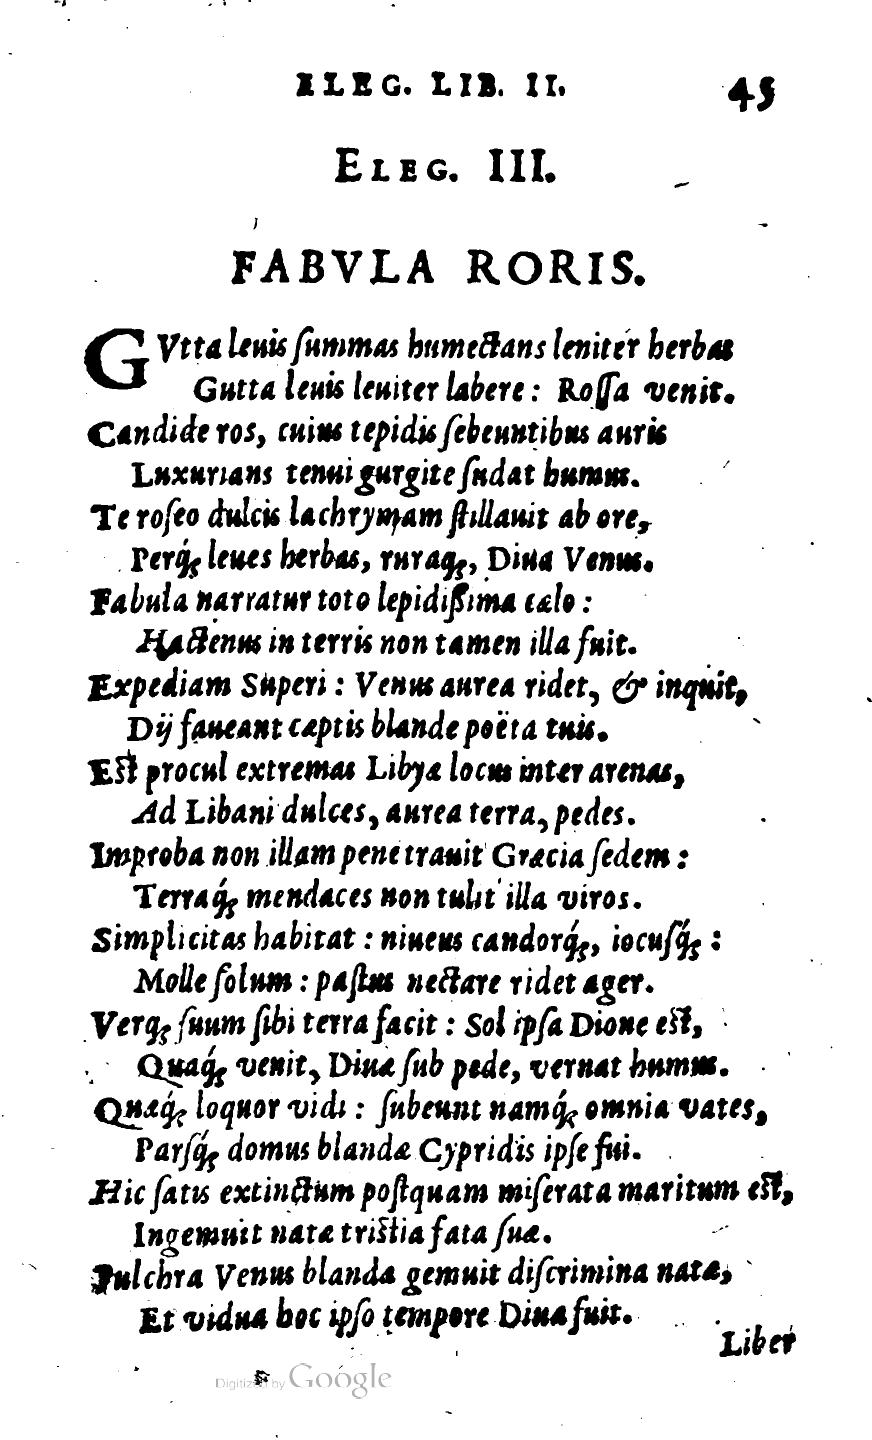 ELEG. LIB. II. 45
ELEG. III.
FABVLA RORIS.
GVtta leuis ſummas humectans leniter herbas
Gutta leuis leuiter labere: Roſſa venit.
Candide ros, cuius tepidis ſebeuntibus auris
Luxurians tenui gurgite ſudat humus.
Te roſeo dulcis lachrymam ſtillauit ab ore,
Perq́; leues herbas, ruraq;, Diua Venus.
Fabula narratur toto lepidiſſima cælo:
Hactenus in terris non tamen illa fuit.
Expediam Superi: Venus aurea ridet, & inquit,
Dij faueant captis blande poëta tuis.
Eſt procul extremas Libyæ locus inter arenas,
Ad Libani dulces, aurea terra, pedes.
Improba non illam penetrauit Græcia ſedem:
Terraq́; mendaces non tulit illa viros.
Simplicitas habitat: niueus candorq́;, iocuſq́;:
Molle ſolum: paſtus nectare ridet ager.
Verq; ſuum ſibi terra facit: Sol ipſa Dione eſt,
Quaq́; venit, Diuæ ſub pede, vernat humus.
Quæq́; loquor vidi: ſubeunt namq́; omnia vates,
Parſq́; domus blandæ Cypridis ipſe fui.
Hic ſatis extinctum poſtquam miſerata maritum eſt,
Ingemuit natæ triſtia fata ſuæ.
Pulchra Venus blanda gemuit diſcrimina natæ,
Et vidua hoc ipſo tempore Diua fuit.
Liber
Digitized by Google